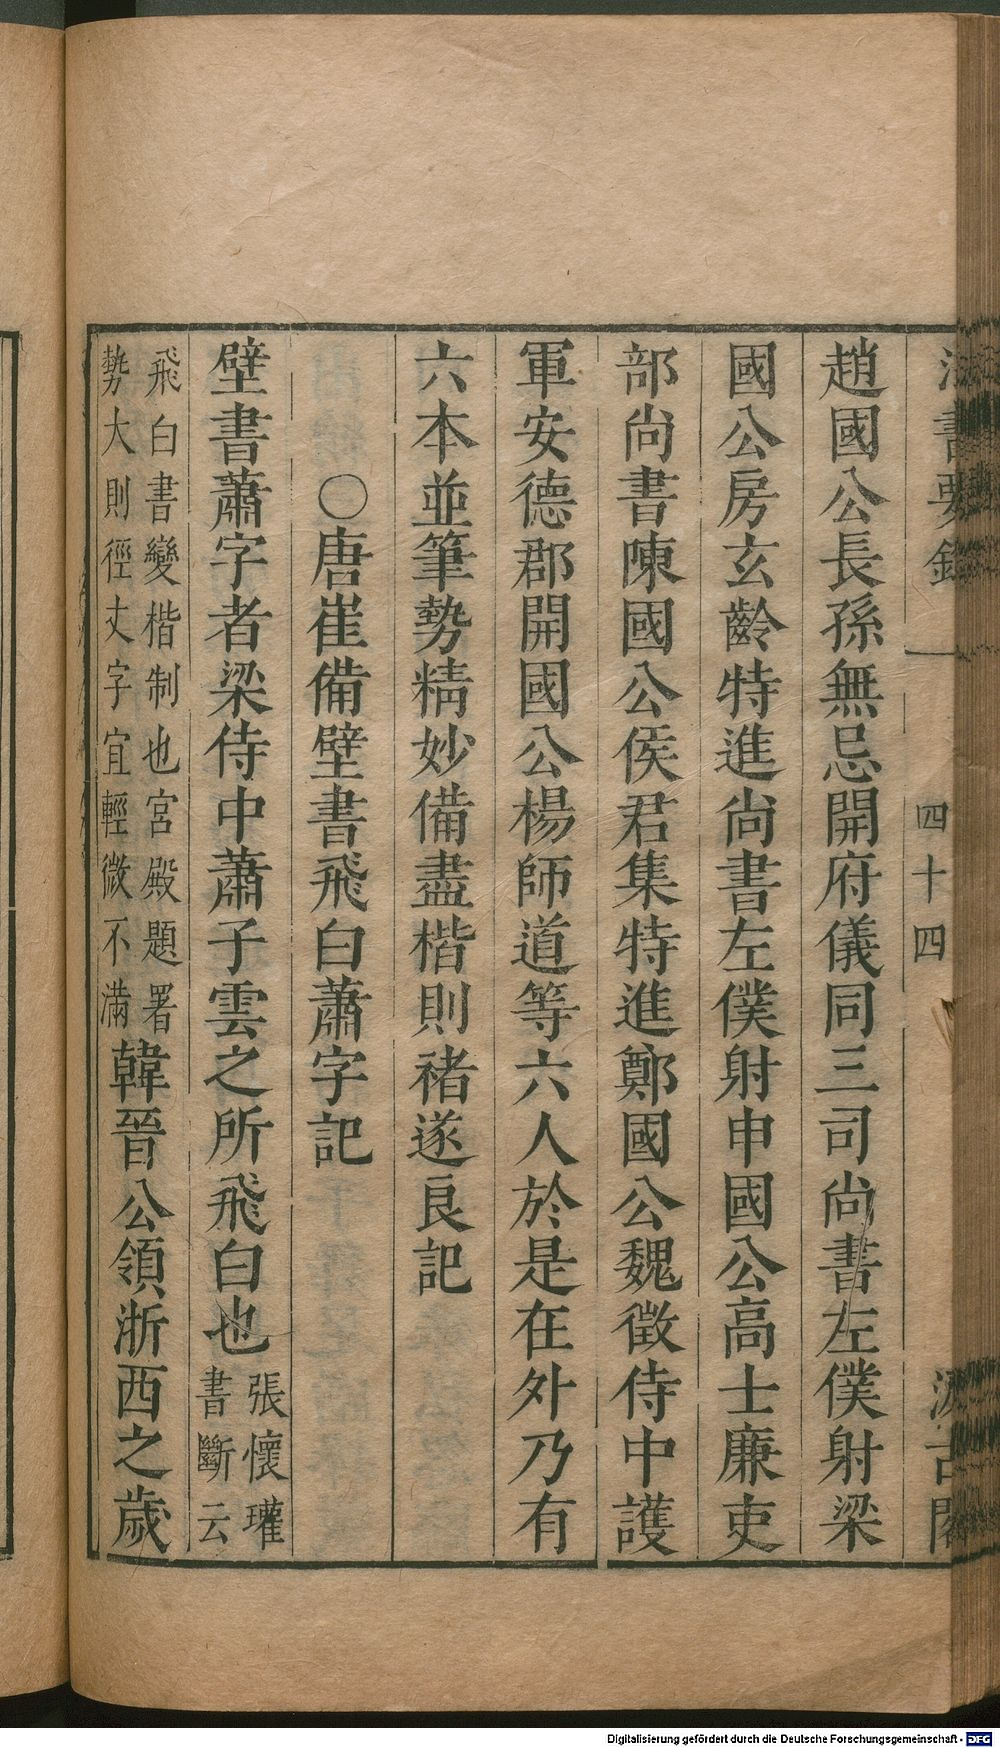 法書要錄
四十四
汲古閣
趙國公長孫無忌開府儀同三司尚書左僕射梁
國公房玄齡特進尚書左僕射申國公高士廉吏
部尚書陳國公侯君集特進鄭國公魏徵侍中護
軍安德郡開國公楊師道等六人於是在外乃有
六本並筆勢精妙備盡楷則褚遂良記
〇唐崔備壁書飛白蕭字記
壁書蕭字者梁侍中蕭子雲之所飛白也張懷瓘書斷云
飛白書變楷制也宮殿題署勢大則徑丈字宜輕微不滿韓晉公領浙西之歲
Digitalisierung gefördert durch die Deutsche Forschungsgemeinschaft - DFG